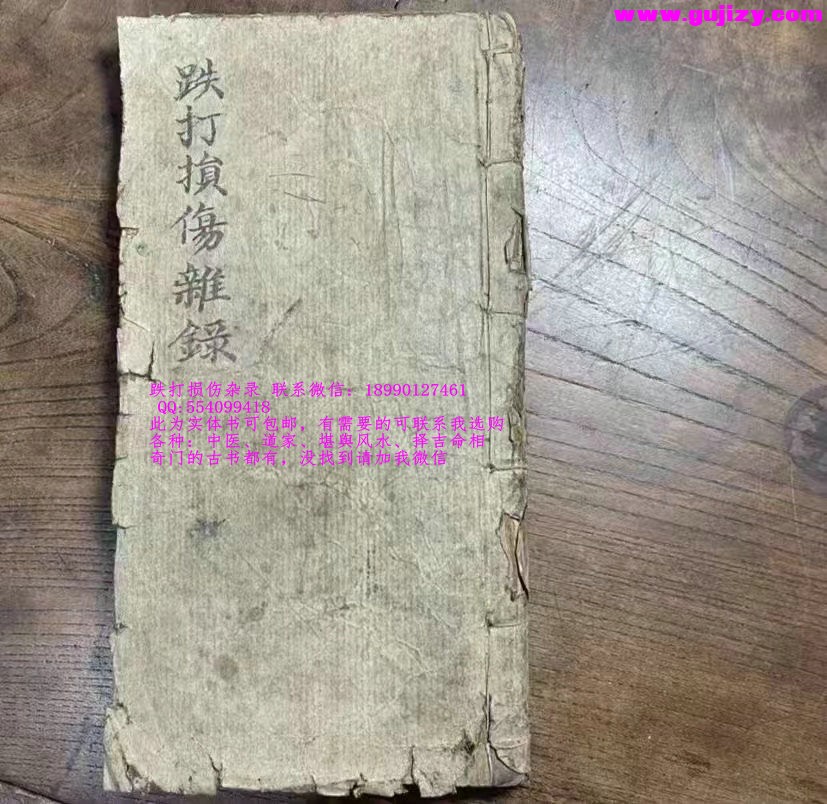 www.gujizy.com
跌打損傷雜錄
跌打损伤杂录 联系微信：18990127461
QQ:554099418
此为实体书可包邮，有需要的可联系我选购
各种：中医、道家、堪舆风水、择吉命相
奇门的古书都有，没找到请加我微信